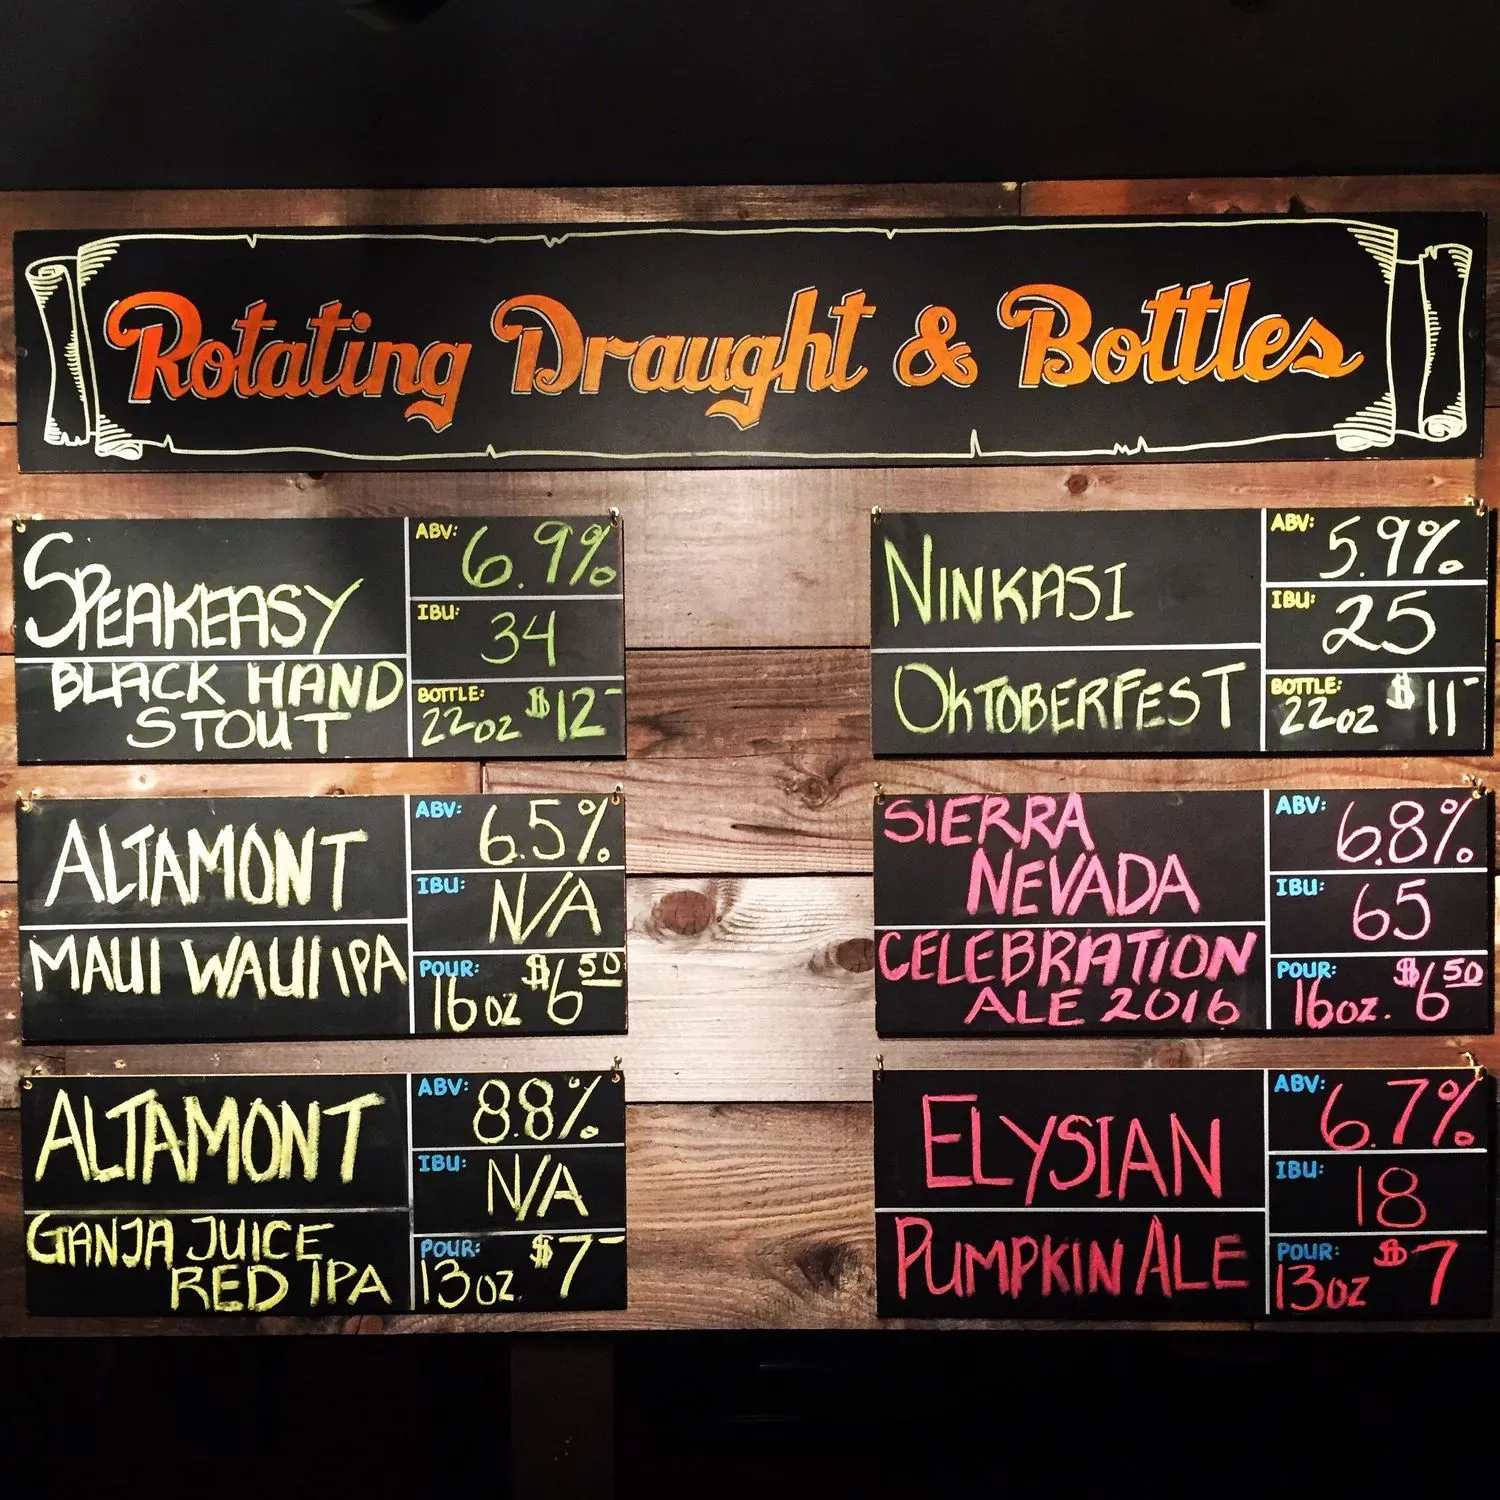 Rotating Draught & Bottles
SPEAKEASY
BLACK HAND
STOUT
ABV: 6.9%
IBU: 34
BOTTLE:
22oz $12-
NINKASI
OKTOBERFEST
ABV: 5.9%
IBU: 25
BOTTLE:
22oz $11-
ALTAMONT
MAUI WAUI IPA
ABV: 6.5%
IBU: N/A
POUR:
16oz $6 50
SIERRA
NEVADA
CELEBRATION
ALE 2016
ABV: 6.8%
IBU: 65
POUR:
16oz. $6 50
ALTAMONT
GANJA JUICE
RED IPA
ABV: 8.8%
IBU: N/A
POUR:
13oz. $7-
ELYSIAN
PUMPKIN ALE
ABV: 6.7%
IBU: 18
POUR:
13oz $7